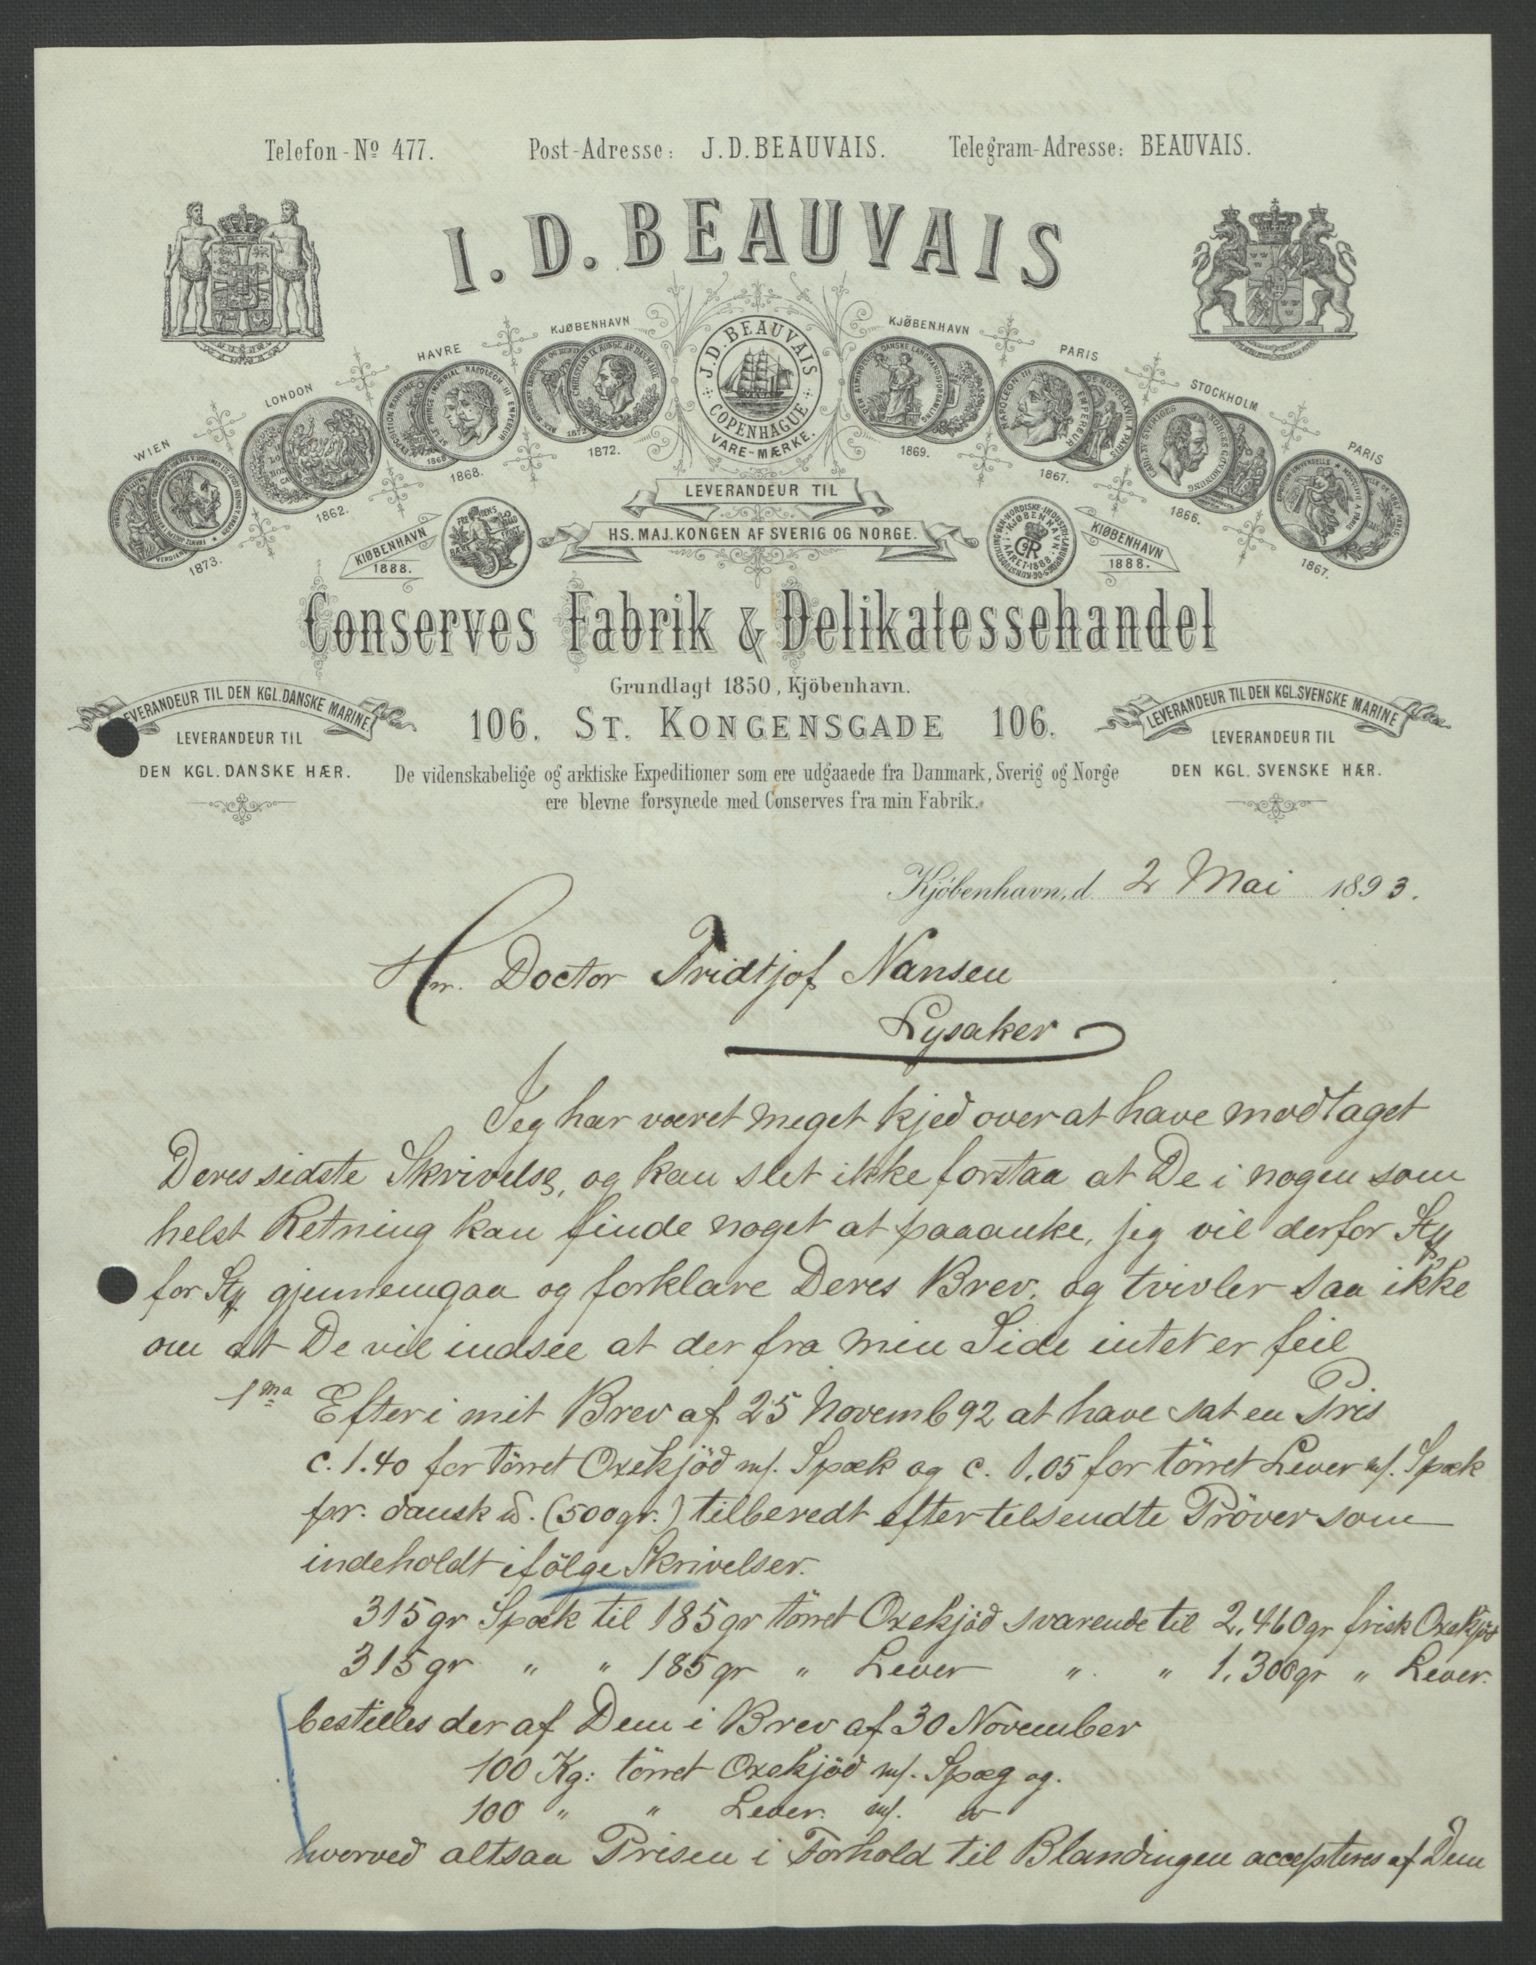 Telefon-Nº 477. Post-Adresse: J.D.BEAUVAIS. Telegram-Adresse: BEAUVAIS.
I.D.BEAUVAIS
WIEN
1873.
LONDON
1862.
HAVRE
1868.
KJØBENHAVN
1872.
J.D.BEAUVAIS
COPENHAGUE
VARE-MÆRKE.
KJØBENHAVN
1869.
PARIS
1867.
STOCKHOLM
1866.
PARIS
1867.
LEVERANDEUR TIL
HS. MAJ. KONGEN AF SVERIG OG NORGE.
KIØBENHAVN
1888.
KIØBENHAVN
1888.
Conserves Fabrik & Delikatessehandel
Grundlagt 1850, Kjöbenhavn.
LEVERANDEUR TIL DEN KGL. DANSKE MARINE.
LEVERANDEUR TIL
DEN KGL. DANSKE HÆR.
106. ST. KONGENSGADE 106.
LEVERANDEUR TIL DEN KGL. SVENSKE MARINE
LEVERANDEUR TIL
DEN KGL. SVENSKE HÆR.
De videnskabelige og arktiske Expeditioner som ere udgaaede fra Danmark, Sverig og Norge
ere blevne forsynede med Conserves fra min Fabrik.
Kjöbenhavn, d. 2 Mai 1893.
Hr. Doctor Fridtjof Nansen
Lysaker
Jeg har været meget kjed over at have modtaget
Deres sidste Skrivelse, og kan slet ikke forstaa at De i nogen som
helst Retning kan finde noget at paaanke, jeg vil derfor Stk
for Stk gjennemgaa og forklare Deres Brev, og tvivler saa ikke
om at De vil indsee at der fra min Side intet er feil
1ma Efter i mit Brev af 25 Novemb 92 at have sat en Pris
c. 1.40 for törret Oxekjöd m/. Spæk og c. 1,05 for törret Lever m/. Spæk
pr. dansk ℔. (500gr.) tilberedt efter tilsendte Pröver som
indeholdt ifölge Skrivelser.
315gr Spæk til 185gr törret Oxekjöd svarende til 2,460gr frisk Oxekjöd
315gr " " 185gr " Lever " " 1,300gr " Lever.
bestilles der af Dem i Brev af 30 November
100 Kg: törret Oxekjöd m/. Spæg og.
100 " " Lever. m/. do
hvorved altsaa Prisen i Forhold til Blandingen accepteres af Dem